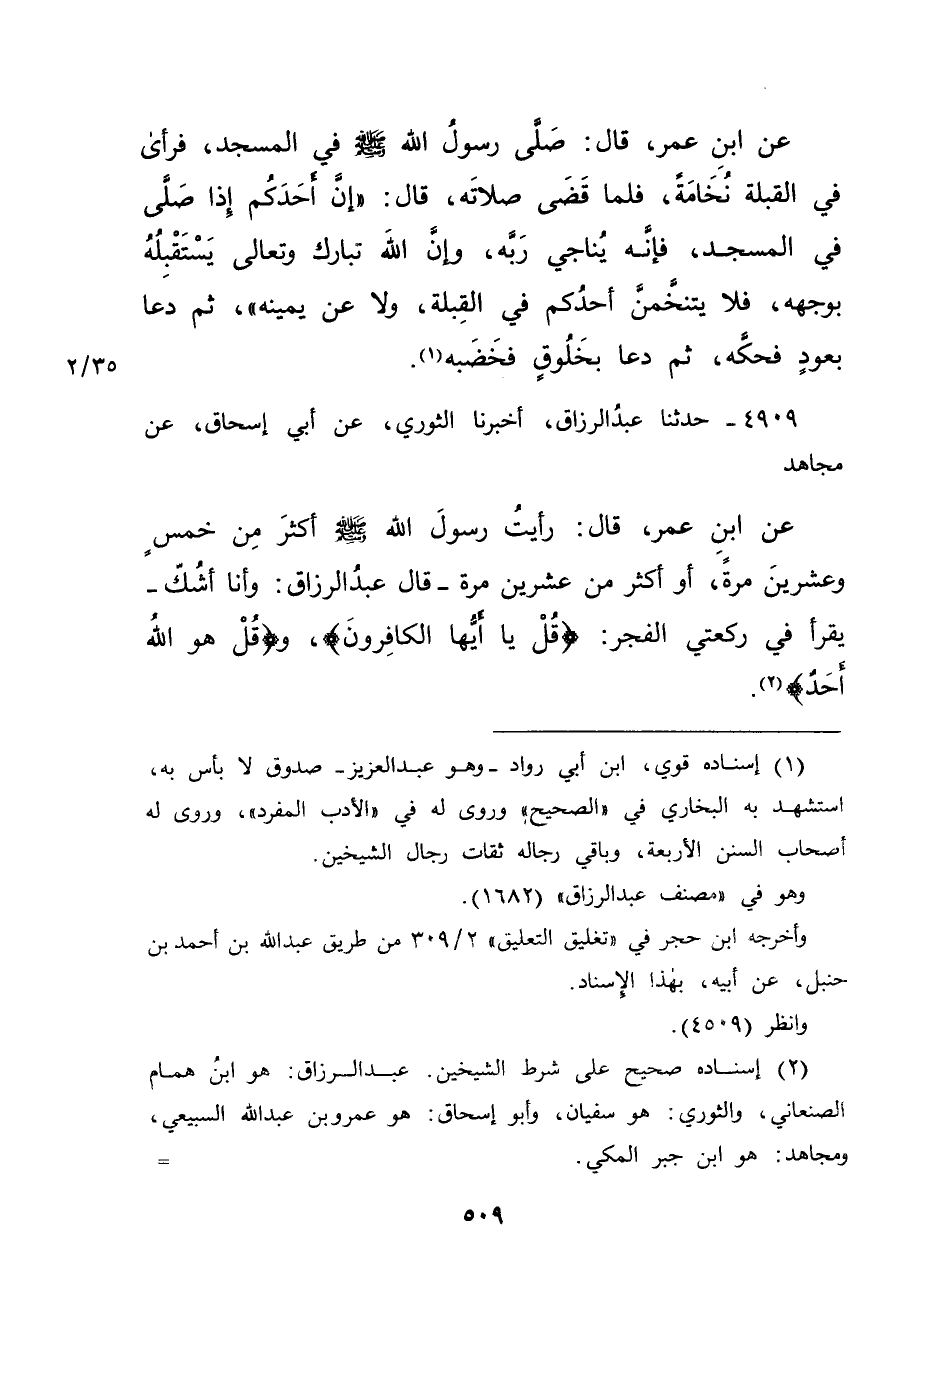 عن ابنِ عمر، قال: صَلَّى رسولُ الله ﷺ في المسجد، فرأىٰ
في القبلة نُخَامَةً، فلما قَضَى صلاتَه، قال: «إنَّ أَحَدَكُم إِذا صَلَّى
في المسجد، فإنَّه يُناجي رَبَّه، وإنَّ اللهَ تبارك وتعالى يَسْتَقْبِلُهُ
بوجهه، فلا يتنخَّمنَّ أحدُكم في القِبلة، ولا عن يمينه»، ثم دعا
بعودٍ فحكَّه، ثم دعا بخَلُوقٍ فخَضَبه(١).
٢/٣٥
٤٩٠٩ ـ حدثنا عبدُالرزاق، أخبرنا الثوري، عن أبي إسحاق، عن
مجاهد
عن ابنِ عمر، قال: رأيتُ رسولَ الله ﷺ أكثرَ مِن خمسٍ
وعشرينَ مرةً، أو أكثر من عشرين مرة ـ قال عبدُالرزاق: وأنا أشُكّ ـ
يقرأ في ركعتي الفجر: ﴿قُلْ يا أَيُّها الكافِرونَ﴾، و﴿قُلْ هو اللهُ
أَحَدٌ﴾(٢).
(١) إسناده قوي، ابن أبي رواد ـ وهو عبدالعزيز ـ صدوق لا بأس به،
استشهد به البخاري في «الصحيح» وروى له في «الأدب المفرد»، وروى له
أصحاب السنن الأربعة، وباقي رجاله ثقات رجال الشيخين.
وهو في «مصنف عبدالرزاق» (١٦٨٢).
وأخرجه ابن حجر في «تغليق التعليق» ٣٠٩/٢ من طريق عبدالله بن أحمد بن
حنبل، عن أبيه، بهٰذا الإسناد.
وانظر (٤٥٠٩).
(٢) إسناده صحيح على شرط الشيخين. عبدالرزاق: هو ابنُ همام
الصنعاني، والثوري: هو سفيان، وأبو إسحاق: هو عمرو بن عبدالله السبيعي،
ومجاهد: هو ابن جبر المكي. =
٥٠٩